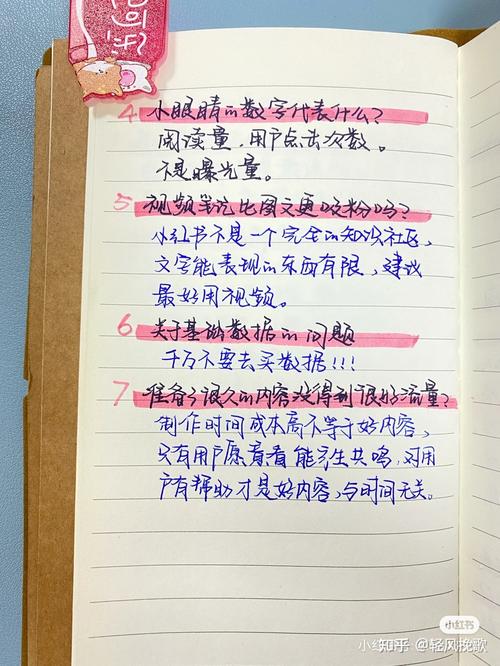 4 小眼睛的数字代表什么？
阅读量，用户点击次数。
不是曝光量。
5 视频笔记比图文更吸粉吗？
小红书不是一个完全的知识社区，
文字能表现的东西有限，建议
最好用视频。
6 关于基础数据的问题
千万不要去买数据！！！
7 准备了很久的内容没得到很好流量？
制作时间成本高不等于好内容，
只有用户愿意看能产生共鸣，对用
户有帮助才是好内容，与时间无关。
小红书
知乎 @轻风挽歌